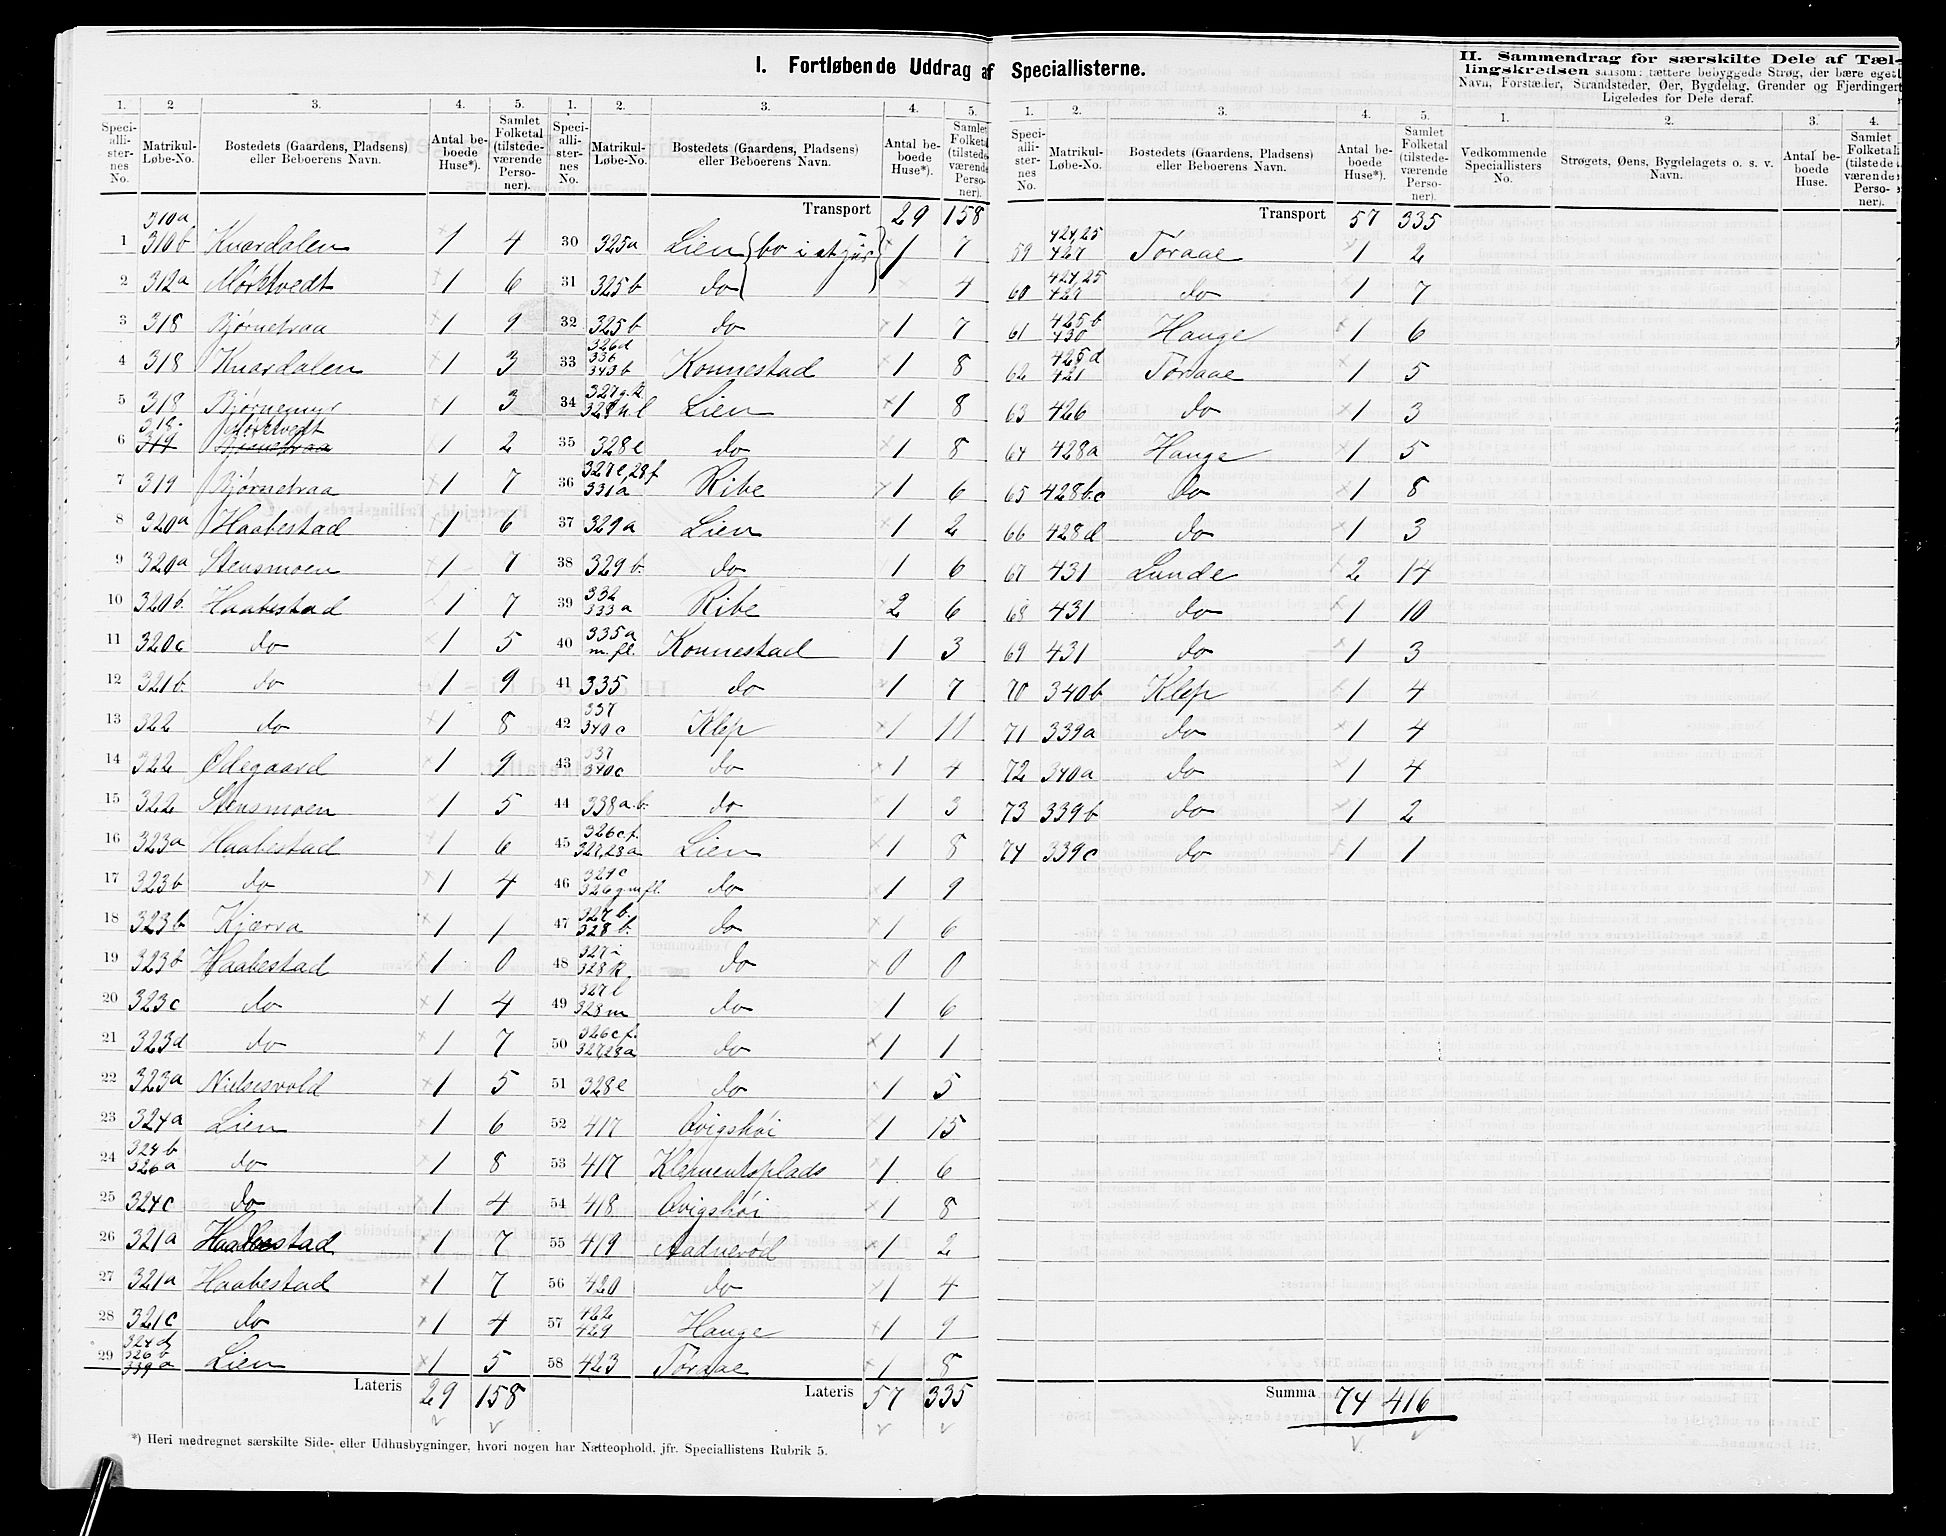 I. Fortløbende Uddrag af Speciallisterne.
1. 2 3. 4. 5.
Speciallisternes No. Matrikul-Løbe-No. Bostedets (Gaardens, Pladsens) eller Beboerens Navn. Antal beboede Huse*). Samlet Folketal (tilstedeværende Personer).
1 310a 310b Knardalen 1 4
2 312a Mørktvedt 1 6
3 318 Bjørnetraa 1 9
4 318 Knardalen 1 3
5 318 Bjørnemyr 1 3
6 318 319 Mørktvedt Bjørnetraa 1 2
7 319 Bjørnetraa 1 7
8 320a Haabestad 1 6
9 320a Stensmoen 1 7
10 320b. Haabestad 1 7
11 320c do 1 5
12 321b. do 1 9
13 322 do 1 8
14 322 Ødegaard 1 9
15 322 Stensmoen 1 5
16 323a Haabestad 1 6
17 323b do 1 4
18 323b Kjærra 1 1
19 323b Haabestad 1 0
20 323c do 1 4
21 323d do 1 7
22 323a Nielsesvold 1 5
23 324a Lien 1 6
24 324b 326a do 1 8
25 324c do 1 4
26 321a Haabestad 1 7
27 321a Haabestad 1 7
28 321c do 1 4
29 324d 326b 339a Lien 1 5
Lateris 29 158
*) Heri medregnet særskilte Side- eller Udhusbygninger, hvori nogen har Natteophold, jfr. Speciallistens Rubrik 5.
1. 2. 3. 4. 5.
Speciallisternes No. Matrikul-Løbe-No. Bostedets (Gaardens, Pladsens) eller Beboerens Navn. Antal beboede Huse*). Samlet Folketal (tilstedeværende Personer).
Transport 29 158
30 325a Lien 1 7
31 325b do 4
32 325b do 1 7
33 326d 336 343b Konnestad 1 8
34 327g.k 328h l Lien 1 8
35 328e do 1 8
36 327e,28f 331a Ribe 1 6
37 329a Lien 1 2
38 329b. do 1 6
39 332 333a Ribe 2 6
40 335a m.fl. Konnestad 1 3
41 335 do 1 7
42 337 340c Klep 1 11
43 337 340c do 1 4
44 338a.b. do 1 3
45 326c.f. 327,28a Lien 1 8
46 324c 326g mfl. do 1 9
47 327b. 328b. do 1 6
48 327i 328k. do 0 0
49 327l 328m do 1 6
50 326c.f. 327,28a do 1 1
51 328e do 1 5
52 417 Qvigshøi 1 15
53 417 Klementsplads 1 6
54 418 Qvigshøi 1 8
55 419 Aadnerød 1 2
56 420 do 1 4
57 422 429 Hauge 1 9
58 423 Toraae 1 8
Lateris 57 335
1. 2. 3. 4. 5.
Speciallisternes No. Matrikul-Løbe-No. Bostedets (Gaardens, Pladsens) eller Beboerens Navn. Antal beboede Huse*). Samlet Folketal (tilstedeværende Personer).
Transport 57 335
59 424,25 427 Toraae 1 2
60 424,25 427 do 1 7
61 425b 430 Hauge 1 6
62 425d 421 Toraae 1 5
63 426 do 1 3
64 428a Hauge 1 5
65 428b.c do 1 8
66 428d do 1 3
67 431 Lunde 2 14
68 431 do 1 10
69 431 do 1 3
70 340b Klep 1 4
71 339a do 1 4
72 340a do 1 4
73 339b do 1 2
74 339c do 1 1
Summa 74 416
II. Sammendrag for særskilte Dele af Tællingskredsen saasom: tættere bebyggede Strøg, der bære eget Navn, Forstæder, Strandsteder, Øer, Bygdelag, Grender og Fjerdinger. Ligeledes for Dele deraf.
1. 2. 3. 4.
Vedkommende Speciallisters No. Strøgets, Øens, Bygdelagets o. s. v. Navn. Antal beboede Huse. Samlet Folketal (tilstedeværende Personer).